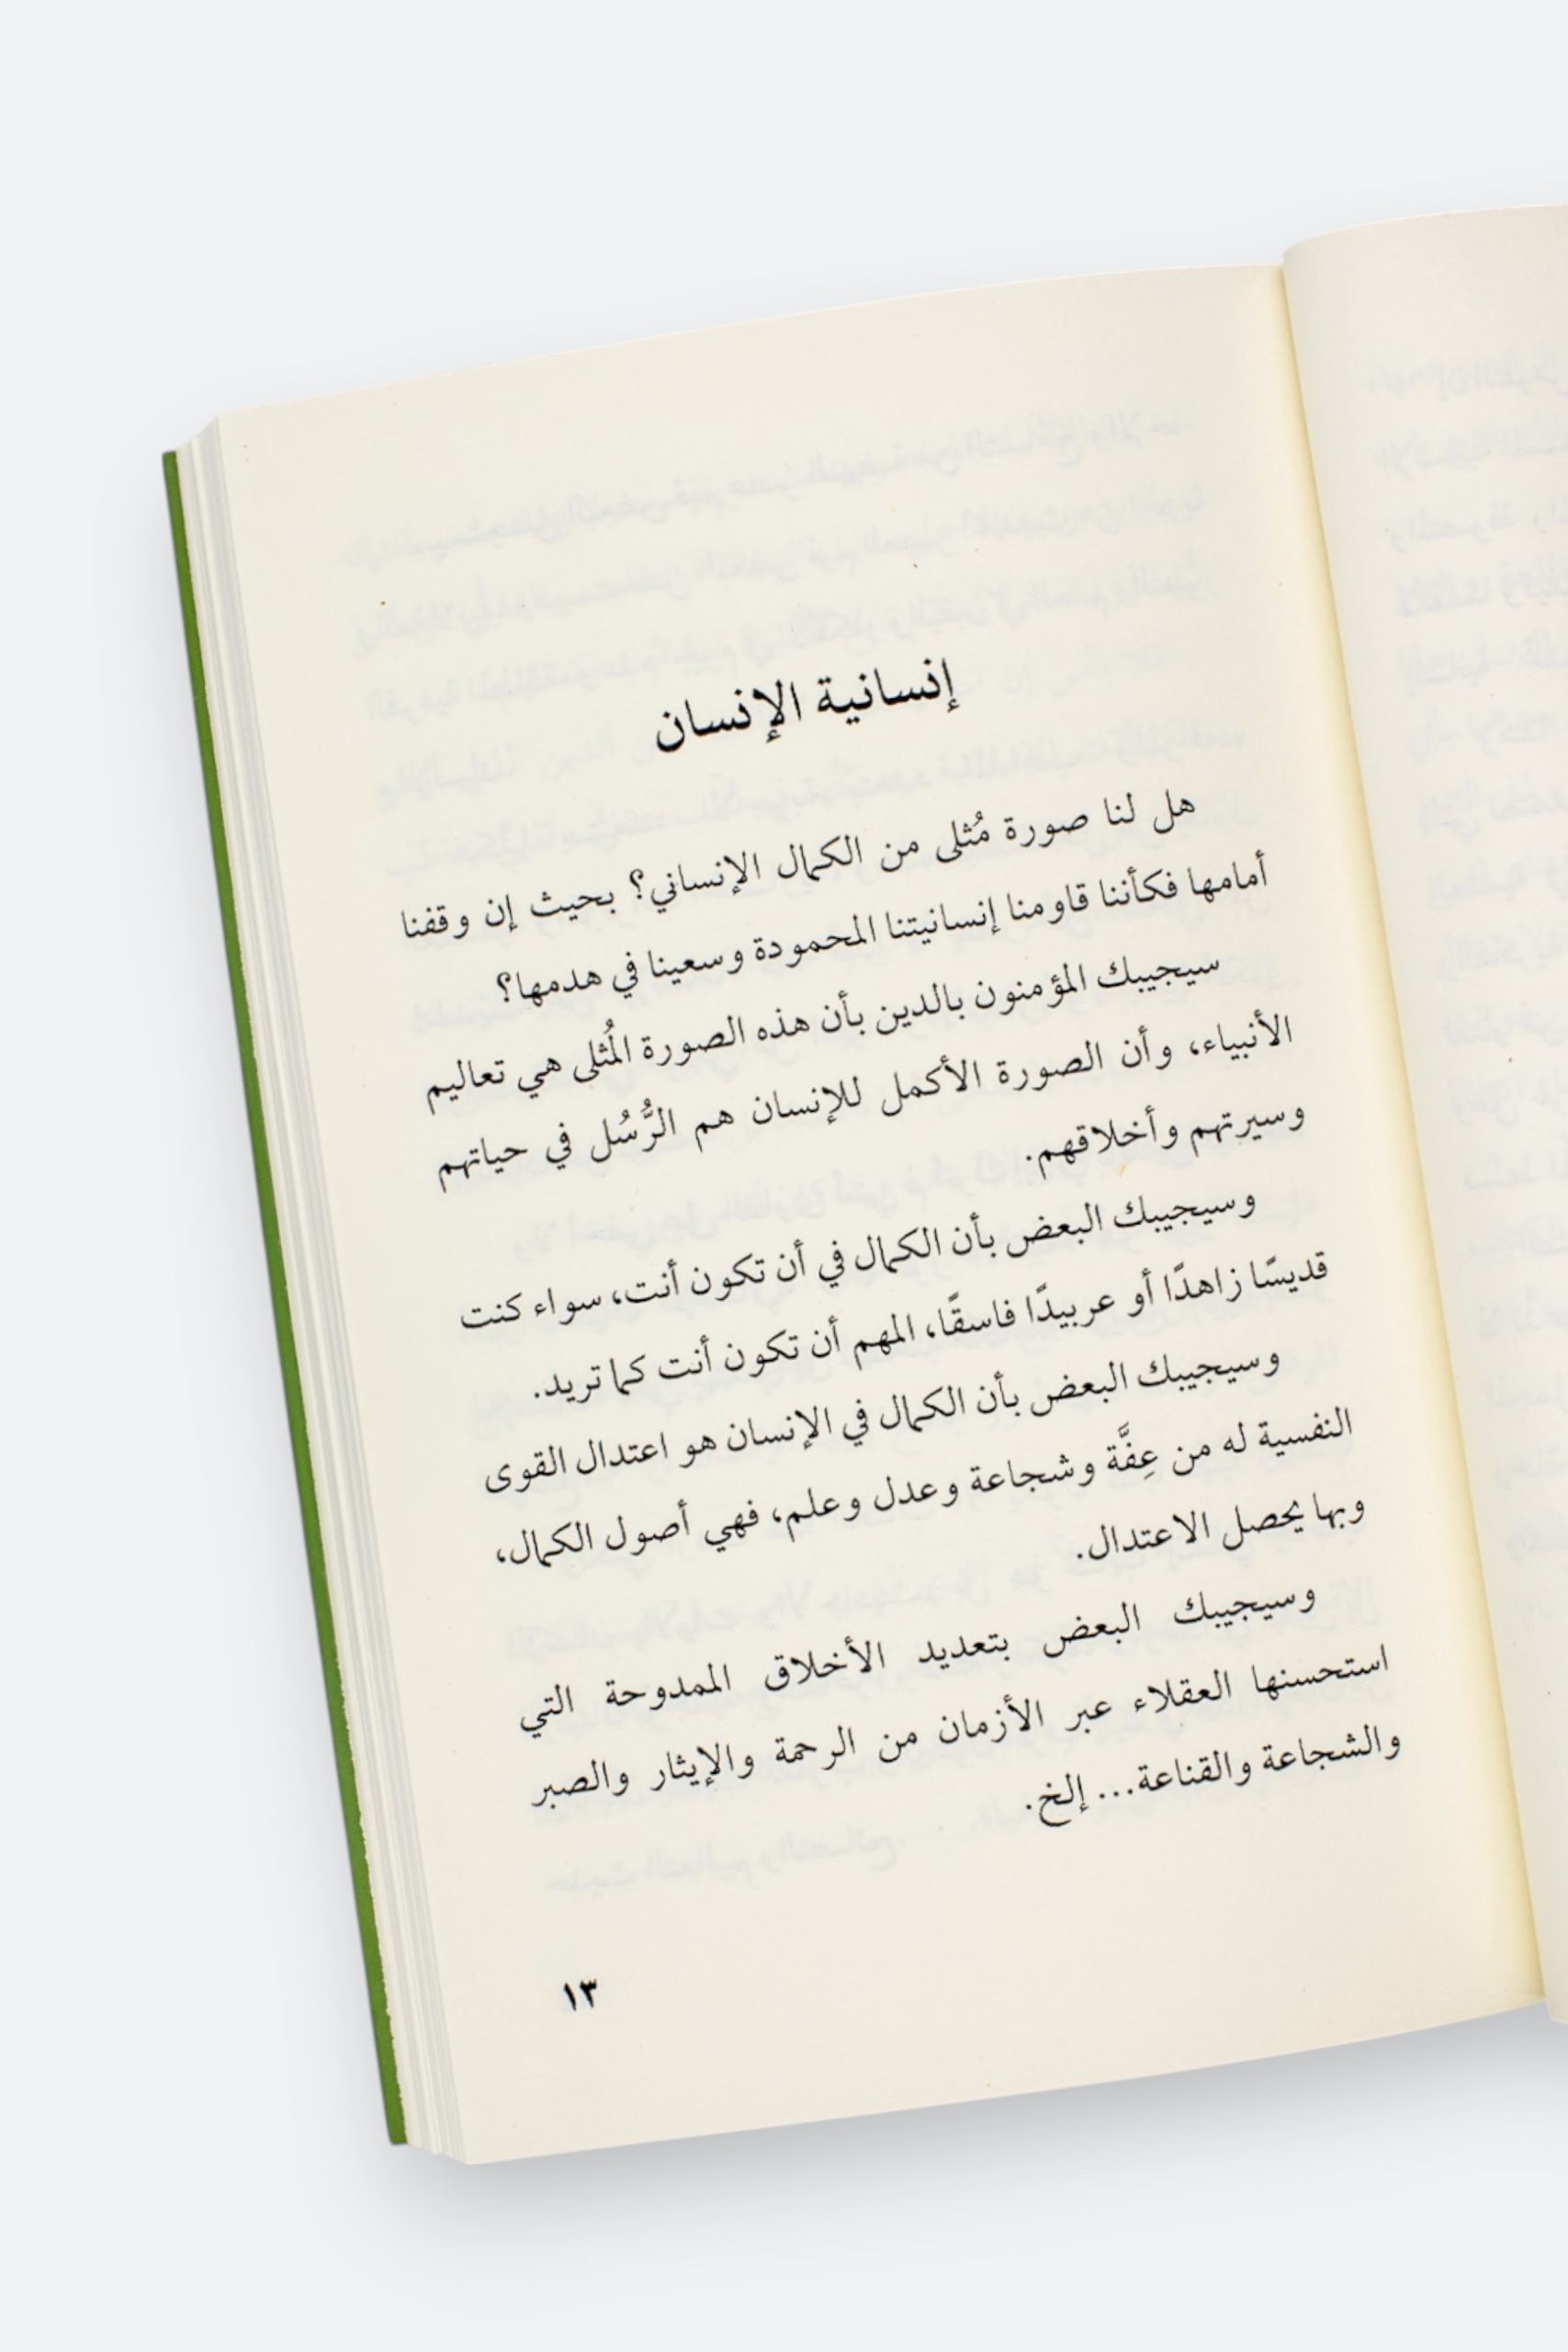 إنسانية الإنسان
هل لنا صورة مُثلى من الكمال الإنساني؟ بحيث إن وقفنا
أمامها فكأننا قاومنا إنسانيتنا المحمودة وسعينا في هدمها؟
سيجيبك المؤمنون بالدين بأن هذه الصورة المُثلى هي تعاليم
الأنبياء، وأن الصورة الأكمل للإنسان هم الرُّسُل في حياتهم
وسيرتهم وأخلاقهم.
وسيجيبك البعض بأن الكمال في أن تكون أنت، سواء كنت
قديسًا زاهدًا أو عربيدًا فاسقًا، المهم أن تكون أنت كما تريد.
وسيجيبك البعض بأن الكمال في الإنسان هو اعتدال القوى
النفسية له من عِفَّة وشجاعة وعدل وعلم، فهي أصول الكمال،
وبها يحصل الاعتدال.
وسيجيبك البعض بتعديد الأخلاق الممدوحة التي
استحسنها العقلاء عبر الأزمان من الرحمة والإيثار والصبر
والشجاعة والقناعة... إلخ.
١٣